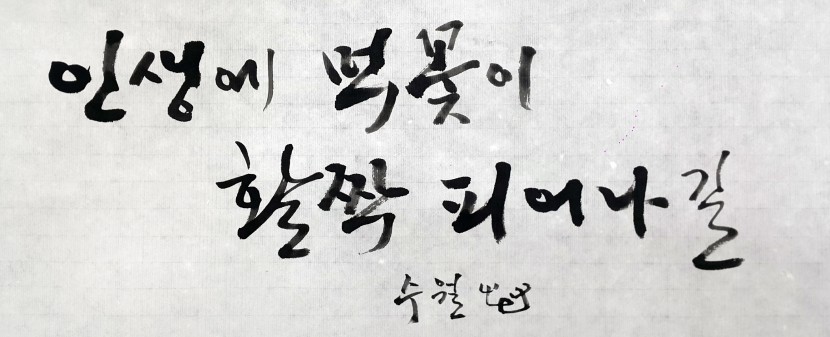 인생에 먹꽃이
활짝 피어나길
수월